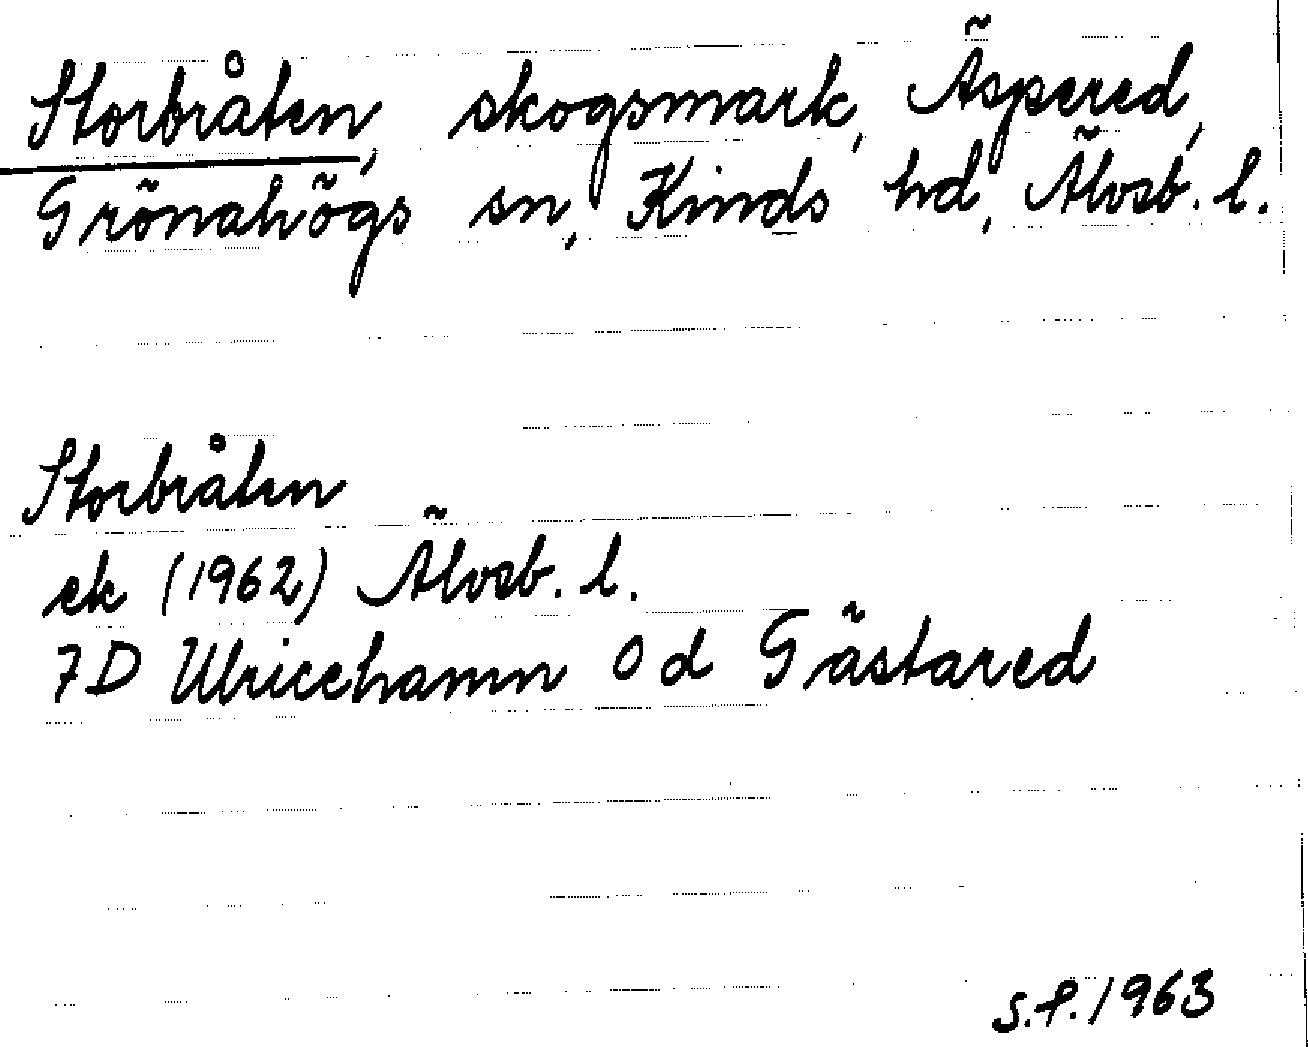 Storbråten, skogsmark, Äspered,
Grönahögs sn, Kinds hd, Älvsb. l.
Storbråten
ek (1962) Älvsb. l.
7D Ulricehamn 0 d Gästared
S.P. 1963